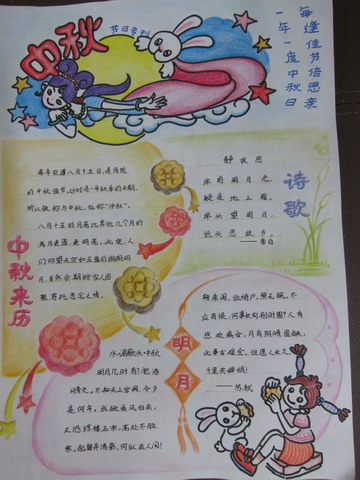 中秋
节日季刊
每逢佳节倍思亲
一年一度中秋日
每年农历八月十五日,是传统
的中秋佳节,这时是一年秋季的中期,
所以被称为中秋,也称"仲秋"。
八月十五的月亮比其他几个月的
满月更圆,更明亮。此夜,人
们仰望天空如玉盘的朗朗明
月,自然会期盼家人团
聚寄托思念之情。
中秋来历
静夜思
床前明月光,
疑是地上霜。
举头望明月,
低头思故乡。
——李白
诗歌
水调歌头·中秋
明月几时有?把酒
问青天。不知天上宫阙,今夕
是何年。我欲乘风归去,
又恐琼楼玉宇,高处不胜
寒。起舞弄清影,何似在人间!
明月
转朱阁,低绮户,照无眠。不
应有恨,何事长向别时圆?人有
悲欢离合,月有阴晴圆缺,
此事古难全。但愿人长久,
千里共婵娟!
——苏轼